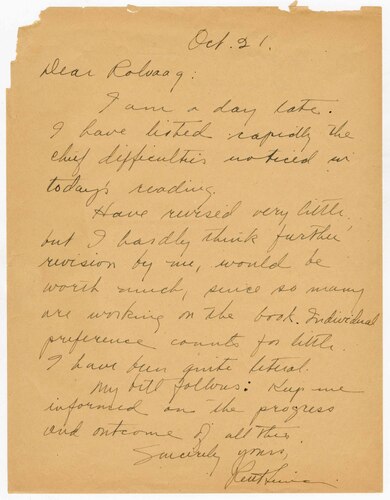 Oct. 21.
Dear Rolvaag:
I am a day late.
I have listed rapidly the
chief difficulties noticed in
today's reading.
Have revised very little,
but I hardly think further
revision by me, would be
worth much, since so many
are working on the book. Individual
preference counts for little.
I have been quite literal.
My bill follows: Keep me
informed on the progress
and outcome of all this.
Sincerely yours,